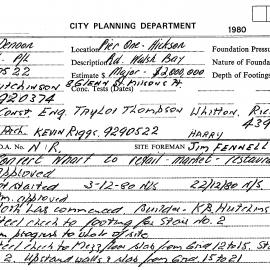 CITY PLANNING DEPARTMENT 1980
Denoon Location Pier One - Hickson Foundation Press
P/L Description Rd. Walsh Bay Nature of Found
0522 Estimate $ Major - $2,000,000 Depth of Footings
utchinson 8 Glenn St. Milsons Pt.
920374 Conc. Tests (Dates)
Const Eng. Taylor Thompson Whitton, Ric
439
Arch. Kevin Riggs. 9290522 HARRY
D.A. No. N/R SITE FOREMAN JIM FENNELL
Convert Wharf to retail - market - restaura
approved
Not started 3-12-80 N/S 22/12/80 N/S
approved
commenced Builder - K.B. Hutchins
steel check to footing for Stair No. 2
progress to whole of site
steel check to Mezz from Grid 12 to 15. St
2. Upstand walls & slab from Grid 15 to 21